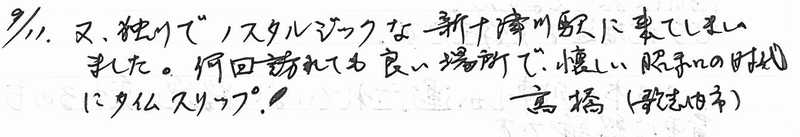 9/11. 又、独りでノスタルジックな新十津川駅に来てしまい
ました。何回訪れても良い場所で、懐しい昭和の時代
にタイムスリップ!
高橋(歌志内市)